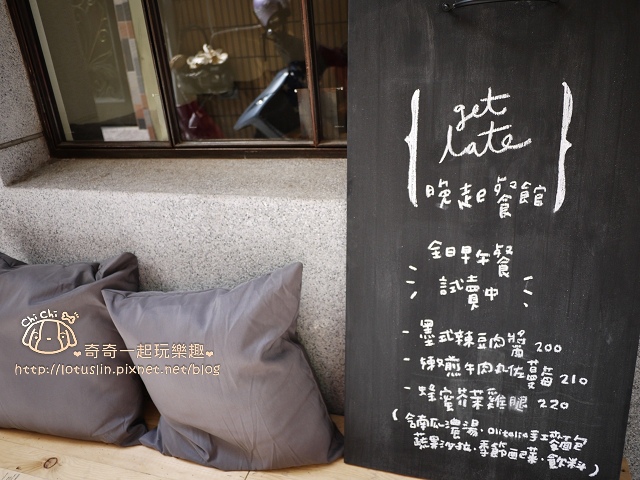 get
late
晚起餐館
全日早午餐
試賣中
- 墨式辣豆肉醬 200
- 嫩煎牛肉丸佐蘑菇 210
- 蜂蜜芥茉雞腿 220
(含南瓜濃湯.Olitalia手工麵包
蔬果沙拉.季節配菜.飲料)
Chi Chi
奇奇一起玩樂趣
http://lotuslin.pixnet.net/blog